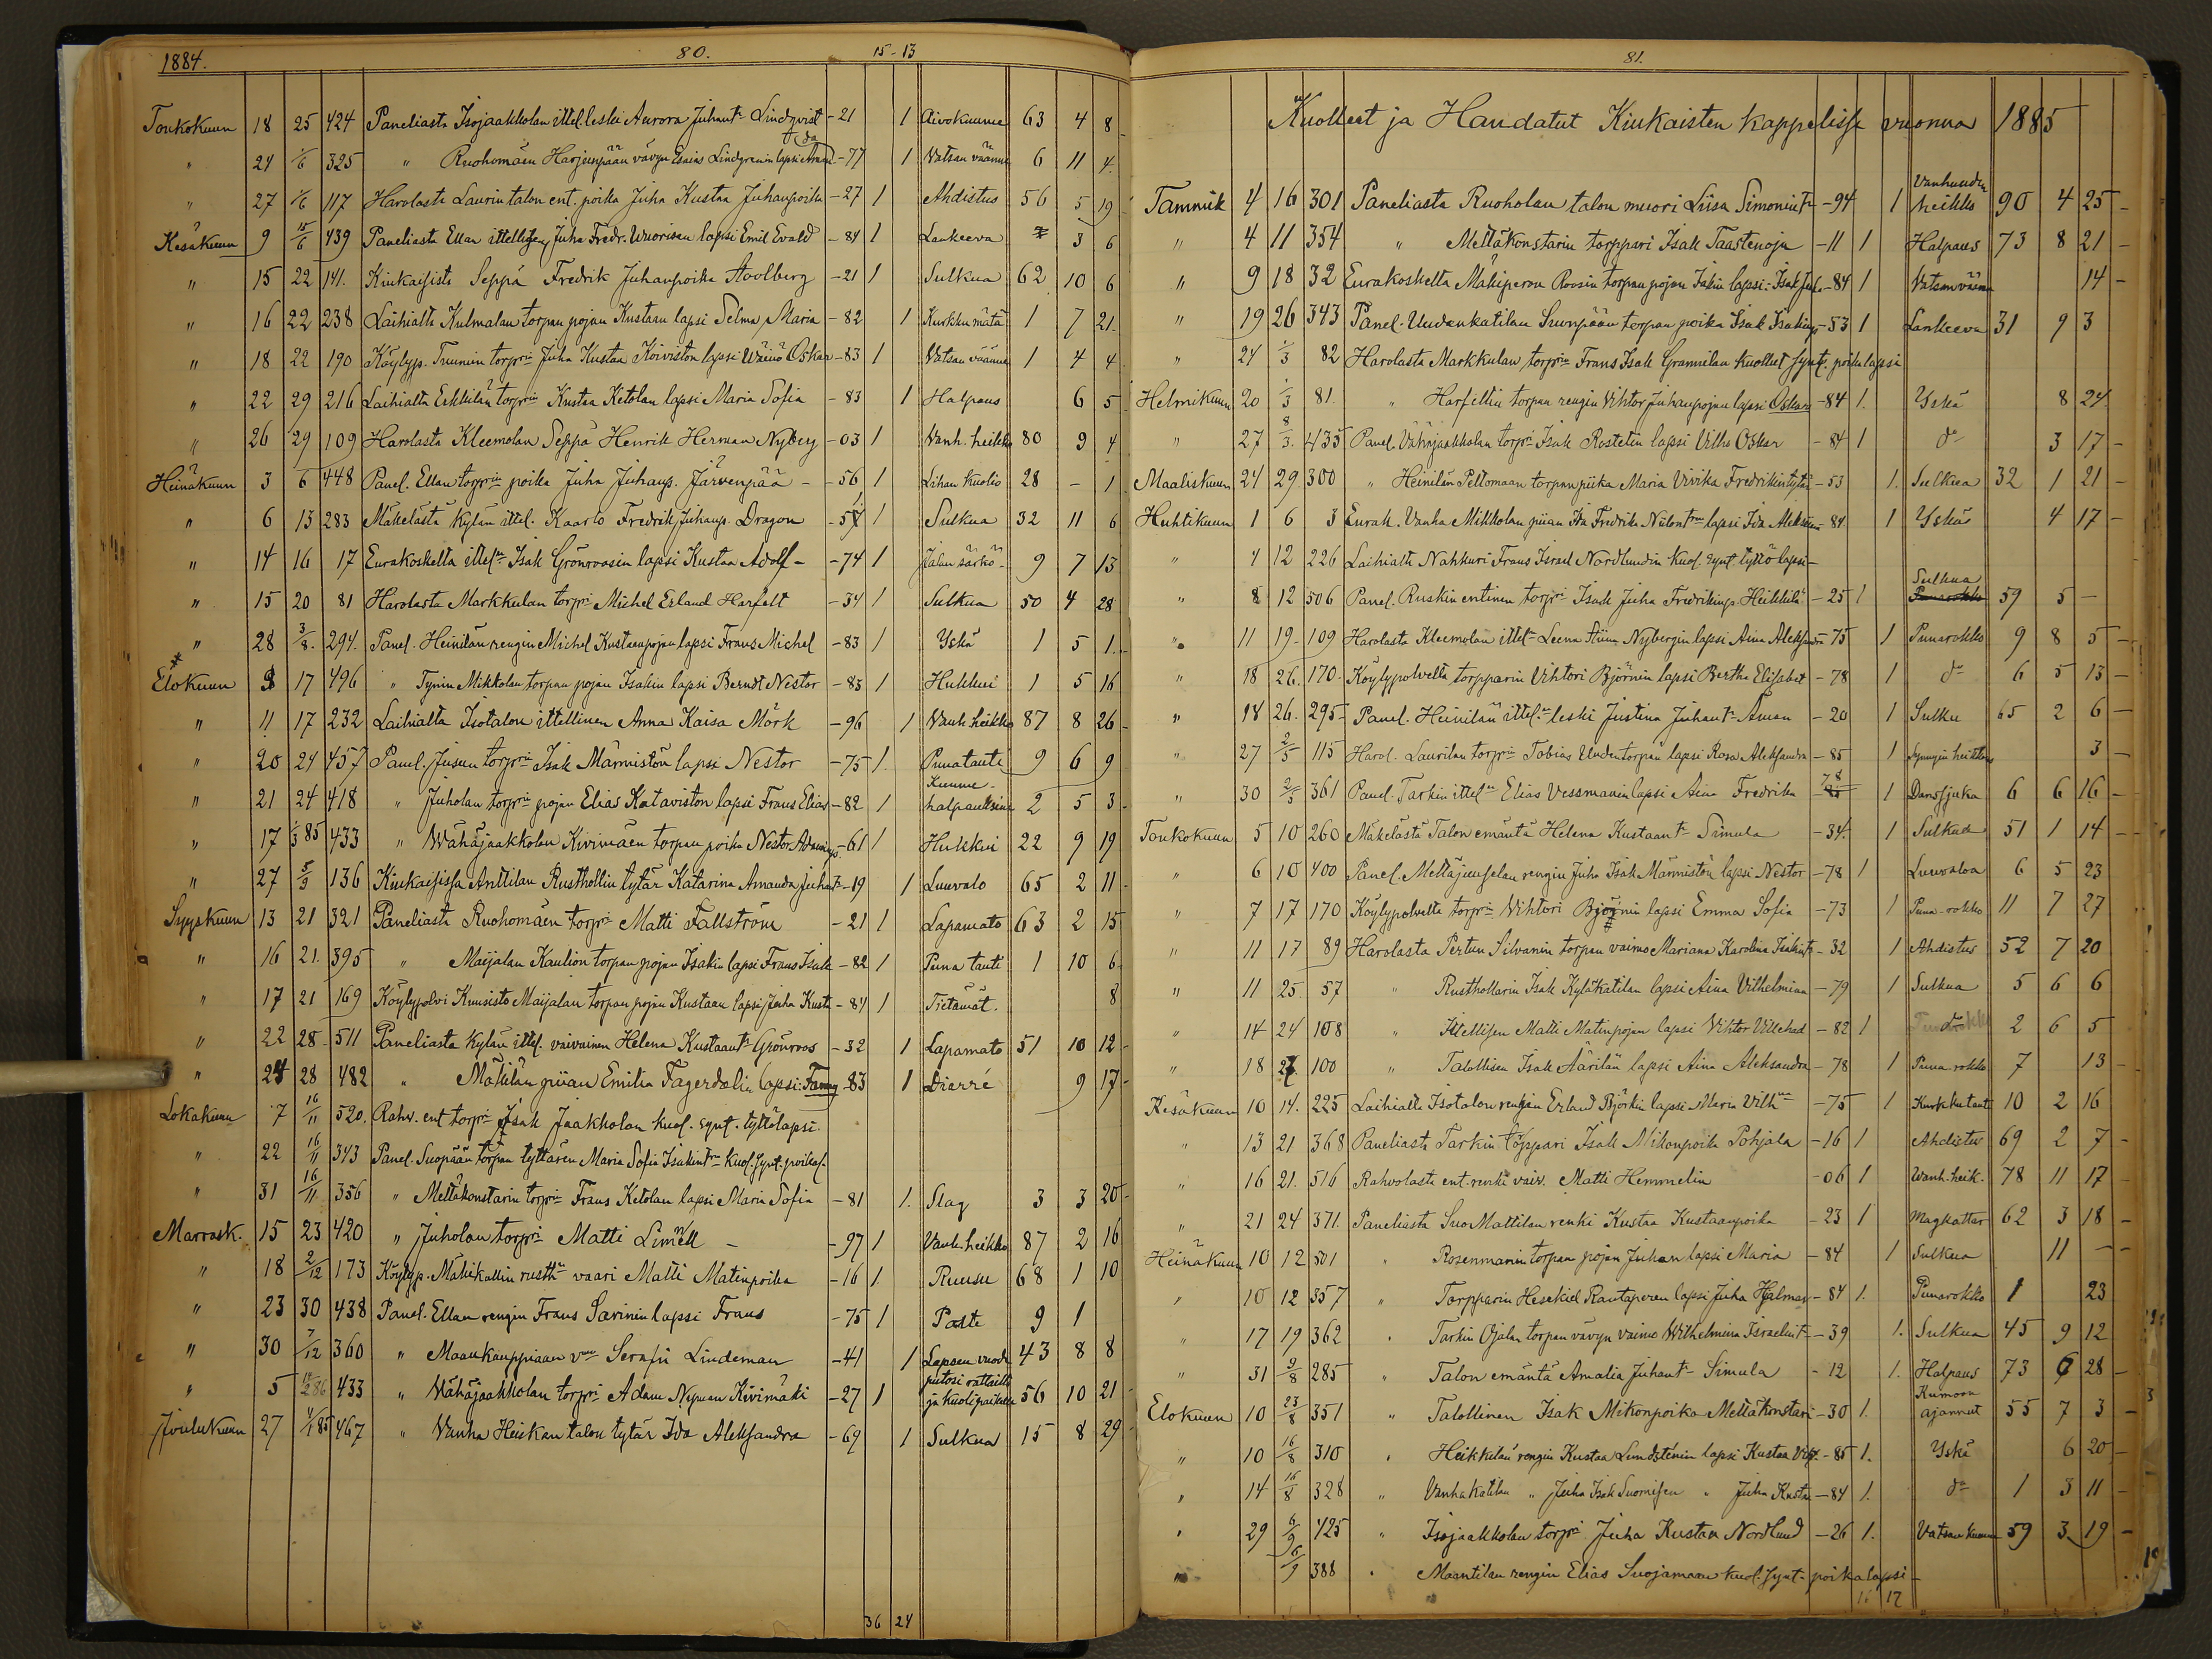 1884. 80. 15-13
Toukokuun 18 25 424 Paneliasta Isojaakkolan ittel. leski Aurora Juhant. Lindqvist -21 1 Aivokuume 63 4 8
" 24 1/6 325 " Ruohomäen Harjunpään vävyn Esaias Lindgrenin lapsi -77 1 Vatsan väänne 6 11 4
" 27 1/6 117 Harolasta Laurin talon ent. poika Juha Kustaa Juhanpoika -27 1 Ahdistus 56 5 19
Kesäkuun 9 15/6 439 Paneliasta Ellan ittellisen Juha Fredr. Wuorisen lapsi Emil Evald -84 1 Lankeeva 3 6
" 15 22 141. Kiukaisista Seppä Fredrik Juhanpoika Stolberg -21 1 Sulkua 62 10 6
" 16 22 238 Laihialta Kulmalan torpan pojan Kustaan lapsi Selma Maria -82 1 Kurkku mätä 1 7 21.
" 18 22 190 Köylyp. Tuunin torprin Juha Kustaa Koiviston lapsi Wäinö Oskar -83 1 Vatsan väänne 1 4 4
" 22 29 216 Laihialta Erkkilän torprin Kustaa Ketolan lapsi Maria Sofia -83 1 Halpaus 6 5
" 26 29 109 Harolasta Kleemolan Seppä Henrik Herman Nyberg -03 1 Vanh. heikko 80 9 4
Heinäkuun 3 6 448 Panel. Ellan torprin poika Juha Juhanp. Järvenpää -56 1 Lihan kuolio 28 - 1
" 6 13 283 Mäkelästä Kylän ittel. Kaarlo Fredrik Juhanp. Dragon -51 1 Sulkua 32 11 6
" 14 16 17 Eurakoskelta ittel. Isak Grönroosin lapsi Kustaa Adolf -74 1 Jalan särkö 9 7 13
" 15 20 81 Harolasta Markkulan torpri Michel Erland Harfelt -34 1 Sulkua 50 4 28
" 28 3/8. 294. Panel. Heinilän rengin Michel Kustaanpojan lapsi Frans Michel -83 1 Yskä 1 5 1.
Elokuun 9 17 496 " Tynin Mikkolan torpan pojan Isakin lapsi Berndt Nestor -83 1 Hukkui 1 5 16
" 11 17 232 Laihialta Isotalon ittellinen Anna Kaisa Mörk -96 1 Vanh. heikko 87 8 26
" 20 24 457 Panel. Jusun torprin Isak Märmistön lapsi Nestor -75 1. Punatauti 9 6 9
" 21 24 418 " Juholan torprin pojan Elias Kataviston lapsi Frans Elias -82 1 Kuume-halpauksia 2 5 3
" 17 1/3 85 433 " Wähäjaakkolan Kivimäen torpan poika Nestor Adaminp. -61 1 Hukkui 22 9 19
" 27 5/9 136 Kiukaisissa Anttilan Rusthollin tytär Katarina Amanda Juhant. -19 1 Luuvalo 65 2 11
Syyskuun 13 21 321 Paneliasta Ruohomäen torpri Matti Fallström -21 1 Lapamato 63 2 15
" 16 21. 395 " Maijalan Kaulion torpan pojan Isakin lapsi Frans Isak -82 1 Puna tauti 1 10 6
" 17 21 169 Köylypolvi Kuusisto Maijalan torpan pojan Kustaan lapsi Juha Kusta -84 1 Tietämät. 8
" 22 28 511 Paneliasta Kylän ittel. vaivainen Helena Kustaant. Grönroos -32 1 Lapamato 51 10 12
" 24 28 482 " Mätilän piian Emilia Fagerdalin lapsi: Fanny -83 1 Dierré 9 17
Lokakuun 7 16/11 520. Rahv. ent torpri Isak Jaakkolan kuol. synt. tyttölapsi.
" 22 16/11 343 Panel. Suopään torpan tyttären Maria Sofia Isakintr. Kuol. synt. poikal.
" 31 16/11 356 " Mettäkonstarin torprin Frans Ketolan lapsi Maria Sofia -81 1. Slag 3 3 20
Marrask. 15 23 420 " Juholan torpri Matti Limnell -97 1 Vanh. heikko 87 2 16
" 18 2/12 173 Köylyp. Mäkikallin rusth. vaari Matti Matinpoika -16 1. Ruusu 68 1 10
" 23 30 438 Panel. Ellan rengin Frans Sarinin lapsi Frans -75 1 Polte 9 1
" 30 7/12 360 " Maankauppiaan vmo Serafii Lindeman -41 1 Lapsen vuode 43 8 8
" 5 433 " Wähäjaakkolan torpri Adam Nyman Kivimäki -27 1 putosi rattailta ja kuoli paikalla 56 10 21
Joulukuun 27 4/1 85 467 " Vanha Heiskan talon tytär Ida Aleksandra -69 1 Sulkua 15 8 29
36 24
81.
Kuolleet ja Haudatut Kiukaisten kappelissa vuonna 1885
Tammik 4 16 301 Paneliasta Ruoholan talon muori Liisa Simonint. -94 1 Vanhuuden heikko 90 4 25
" 4 11 354 " Mettäkonstarin torppari Isak Taastenoja -11 1 Halpaus 73 8 21
" 9 18 32 Eurakoskelta Mäkiperon Roosin torpan pojan Isakin lapsi: Isak Juh. -84 1 Vatsan väänne 14
" 19 26 343 Panel. Uudenkatilan Suonpään torpan poika Isak Isakinp. -53 1 Lankeeva 31 9 3
" 24 1/3 82 Harolasta Markkulan torprin Frans Isak Grannilan kuollut synt. poikalapsi
Helmikuun 20 1/3 81 " Harfeltin torpan rengin Vihtor Juhanpojan lapsi Oskari -84 1. Yskä 8 24.
" 27 8/3. 435 Panel. Vähäjaakkolan torpri Isak Rostetin lapsi Vilho Oskar -84 1 do 3 17
Maaliskuun 24 29 300 " Heinilän Peltomaan torpan piika Maria Vivika Fredrikintytär -53 1. Sulkua 32 1 21
Huhtikuun 1 6 3 Eurak. Vanha Mikkolan piian Ida Fredrika lapsi Ida Aleksan. -84 1 Yskä 4 17
" 4 12 226 Laihialta Nahkuri Frans Israel Nordlundin kuol. synt. tyttölapsi
" 8 12 506 Panel. Ruskin entinen torpri Isak Juha Fredrikinp. Heikkilä -25 1 Sulkua Punarokko 59 5
" 11 19 109 Harolasta Kleemolan ittel. Leena Stiina Nybergin lapsi Aina Aleksandra -75 1 Punarokko 9 8 5
" 18 26. 170. Köylypolvelta torpparin Vihtori Björnin lapsi Bertha Elisabet -78 1 do 6 5 13
" 18 26. 295 Panel. Heinilän ittel. leski Justina Juhant. Aman -20 1 Sulku 65 2 6
" 27 2/5 115 Harol. Laurilan torprin Tobias Uudentorpan lapsi Rosa Aleksandra -85 1 Synnyin heikkous 3
" 30 2/5 361 Panel. Tarkin ittel. Elias Vessmanin lapsi Aina Fredrika 78 1 Danssjuka 6 6 16
Toukokuun 5 10 260 Mäkelästä Talon emäntä Helena Kustaant. Simula -34. 1 Sulkua 51 1 14
" 6 10 400 Panel. Mettäjuuselan rengin Juha Isak Märmistön lapsi Nestor -78 1 Luuvaloa 6 5 23
" 7 17 170 Köylypolvelta torprin Vihtori Björnin lapsi Emma Sofia -73 1 Puna-rokko 11 7 27
" 11 17 89 Harolasta Pertun Silvanin torpan vaimo Mariana Karolina Isakint. -32 1 Ahdistus 52 7 20
" 11 25 57 " Rusthollarin Isak Kyläkatilan lapsi Aina Vilhelmina -79 1 Sulkua 5 6 6
" 14 24 108 " Ittellisen Matti Matinpojan lapsi Vihtor Villehad -82 1 do 2 6 5
" 18 100 " Talollisen Isak Äärilän lapsi Aina Aleksandra -78 1 Puna-rokko 7 13
Kesäkuun 10 14. 225 Laihialta Isotalon rengin Erland Björkin lapsi Maria Vilh. -75 1 Kurkkutauti 10 2 16
" 13 21 368 Paneliasta Tarkin torppari Isak Mikonpoika Pohjala -16 1 Ahdistus 69 2 7
" 16 21. 516 Rahvolasta ent. renki vaiv. Matti Hemmelin -06 1 Wanh. heik. 78 11 17
" 21 24 371. Paneliasta Suo Mattilan renki Kustaa Kustaanpoika -23 1 Magkattar 62 3 18
Heinäkuun 10 12 501 " Rosenmanin torpan pojan Juhan lapsi Maria -84 1 Sulkua 11 -
" 10 12 357 " Torpparin Hesekiel Rautaperen lapsi Juha Hjalmar -84 1. Punarokko 1 23
" 17 19 362 " Tarkin Ojalan torpan vävyn vaimo Wilhelmina Israelint. -39 1. Sulkua 45 9 12
" 31 9/8 285 " Talon emäntä Amalia Juhant. Simula -12 1. Halpaus 73 6 28
Elokuun 10 23/8 351 " Talollinen Isak Mikonpoika Mettäkonstari -30 1. Kumoon ajannut 55 7 3
" 10 16/8 310 " Heikkilän rengin Kustaa Lundsténin lapsi Kustaa Vilh. -85 1. Yskä 6 20
" 14 16/8 328 " Vanhakatilan " Juha Isak Suomisen " Juha Kusta -84 1. do 1 3 11
" 29 6/9 425 " Isojaakkolan torpri Juha Kustaa Nordlund -26 1. Vatsan kuume 59 3 19
" 6/9 388 " Maantilan rengin Elias Suojamaan kuol. synt. poikalapsi
16 17